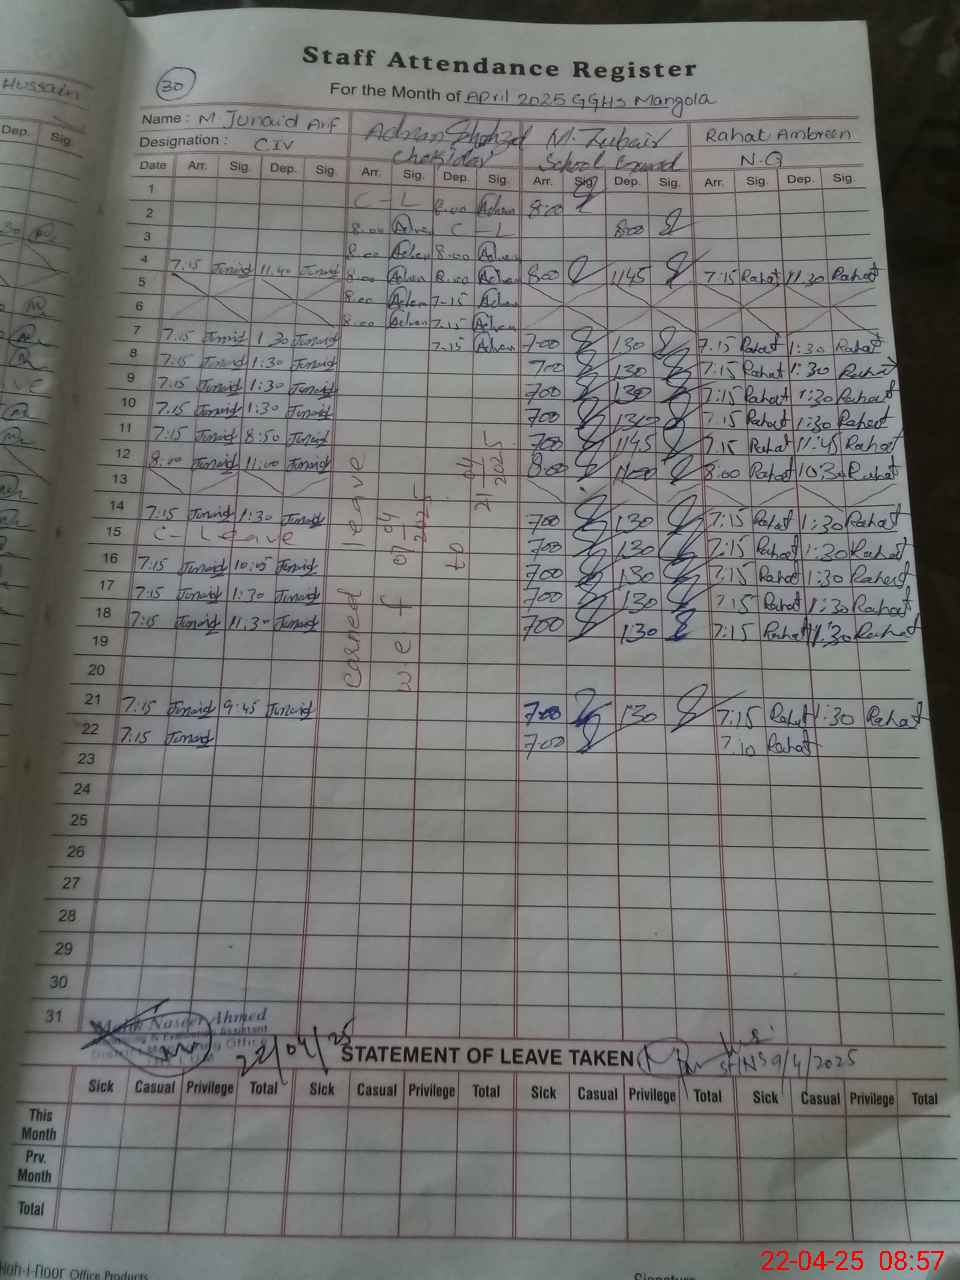 Hussain
Dep. Sig.
Staff Attendance Register
30
For the Month of April 2025 GGHS Mangola
Name : M. Junaid Arif Adnan Shahzad M. Zubair Rahat Ambreen
Designation : C.IV Chokidar School Guard N.Q
Date Arr. Sig. Dep. Sig. Arr. Sig. Dep. Sig. Arr. Sig. Dep. Sig. Arr. Sig. Dep. Sig.
1 C-L 8:00 Adnan 8:00
2 8:00 Adnan C-L 8:00
3 8:00 Adnan 8:00 Adnan
4 7:15 Junaid 11:40 Junaid 8:00 Adnan 8:00 Adnan 800 1145 7:15 Rahat 11:30 Rahat
5 8:00 Adnan 7:15 Adnan
6 8:00 Adnan 7:15 Adnan
7 7:15 Junaid 1:30 Junaid 7:15 Adnan 700 130 7:15 Rahat 1:30 Rahat
8 7:15 Junaid 1:30 Junaid 700 130 7:15 Rahat 1:30 Rahat
9 7:15 Junaid 1:30 Junaid 700 130 7:15 Rahat 1:30 Rahat
10 7:15 Junaid 1:30 Junaid 700 130 7:15 Rahat 1:30 Rahat
11 7:15 Junaid 8:50 Junaid 700 1145 7:15 Rahat 11:45 Rahat
12 8:00 Junaid 11:00 Junaid 800 1100 8:00 Rahat 10:30 Rahat
13
14 7:15 Junaid 1:30 Junaid 700 130 7:15 Rahat 1:30 Rahat
15 C-Leave 700 130 7:15 Rahat 1:30 Rahat
16 7:15 Junaid 10:05 Junaid 700 130 7:15 Rahat 1:30 Rahat
17 7:15 Junaid 1:30 Junaid 700 130 7:15 Rahat 1:30 Rahat
18 7:15 Junaid 11:30 Junaid 700 1:30 7:15 Rahat 1:30 Rahat
19
20
earned leave
w.e.f 07-04-2025
to 21-04-2025
21 7:15 Junaid 9:45 Junaid 700 130 7:15 Rahat 1:30 Rahat
22 7:15 Junaid 700 7:10 Rahat
23
24
25
26
27
28
29
30
31
Naseer Ahmed
Assistant
Office
22/04/25
STATEMENT OF LEAVE TAKEN
9/4/2025
Sick Casual Privilege Total Sick Casual Privilege Total Sick Casual Privilege Total Sick Casual Privilege Total
This Month
Prv. Month
Total
Koh-i-Noor Office Products
Signature
22-04-25 08:57